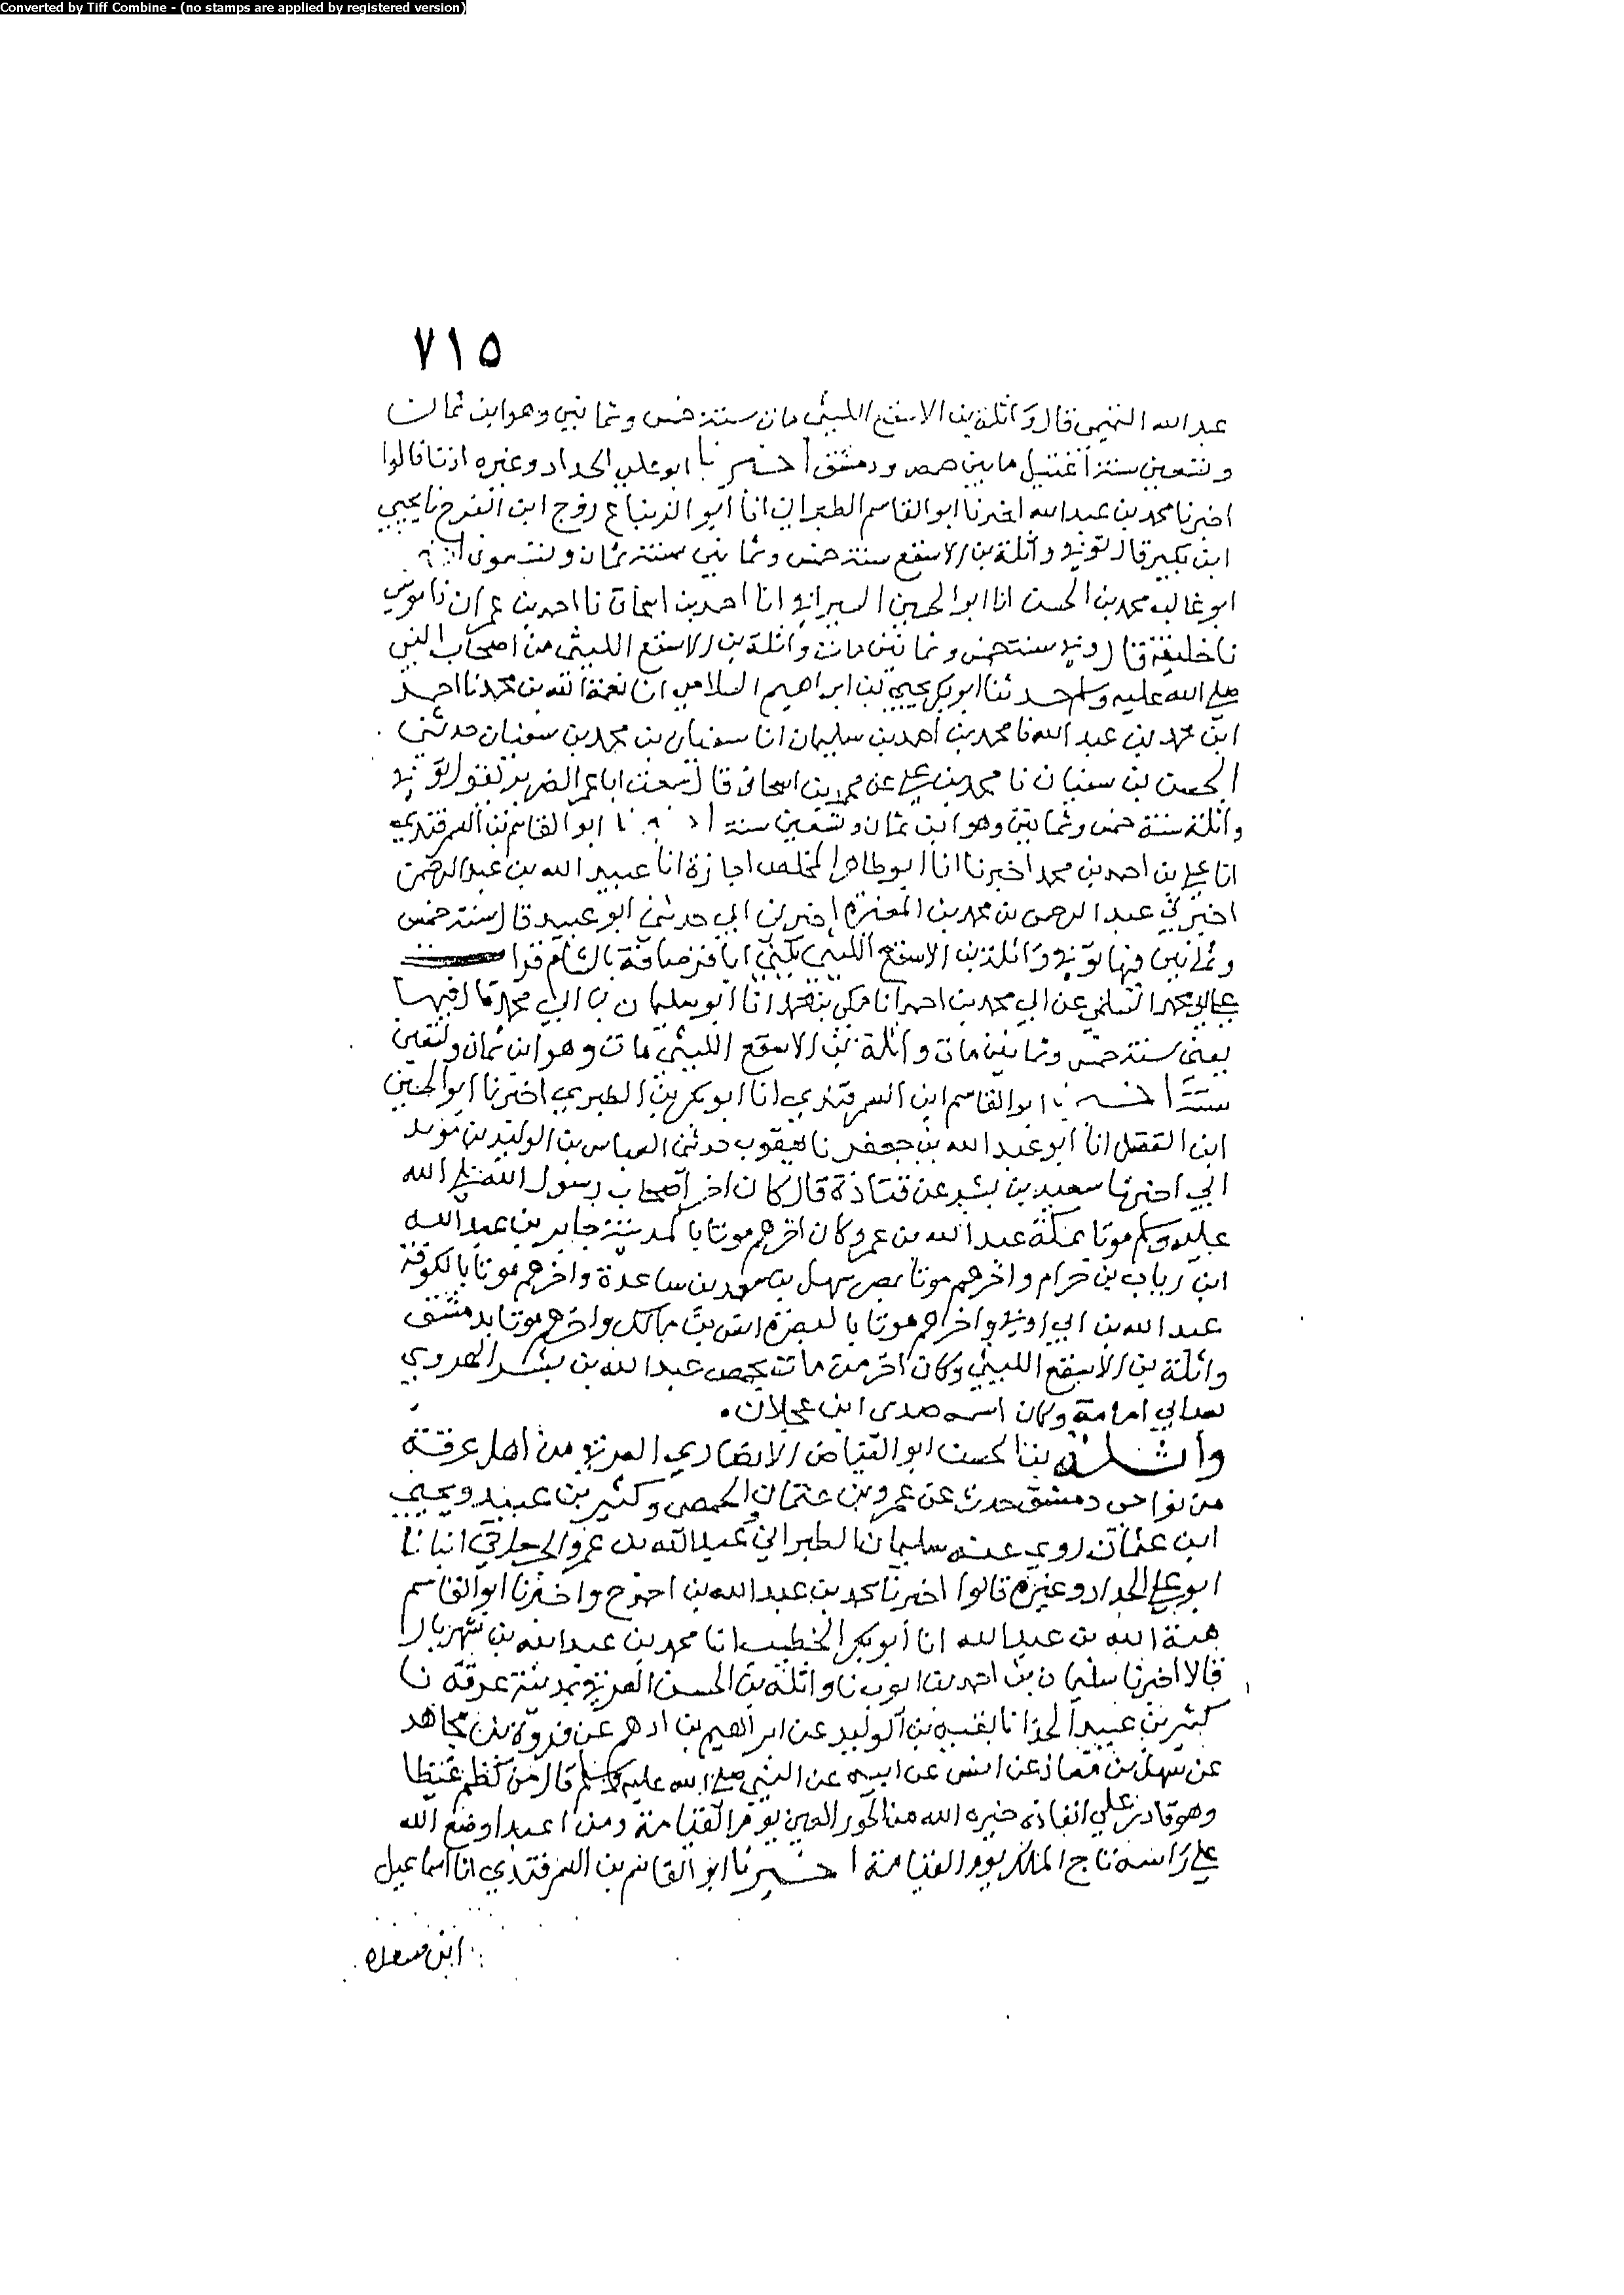 Converted by Tiff Combine - (no stamps are applied by registered version)
٧١٥
عبد الله التميمي قال واثلة بن الاسقع الليثي مات سنة خمس وثمانين وهو ابن ثمان
وتسعين سنة ما بين حمص ودمشق اخبرنا ابو علي الحداد وغيره اذنا قالوا
اخبرنا محمد بن عبد الله اخبرنا ابو القاسم الطبراني انا ابو الزنباع روح ابن الفرج نا يحيى
ابن بكير قال توفي واثلة بن الاسقع سنة خمس وثمانين سنه ثمان وتسعون
ابو غالب محمد بن الحسن انا ابو الحسين السيرافي انا احمد بن اسحاق نا احمد بن عمران نا موسى
نا خليفة قال وفي سنة خمس وثمانين مات واثلة بن الاسقع الليثي من اصحاب النبي
صلى الله عليه وسلم حدثنا ابو بكر يحيى بن ابراهيم السلامي انا نعمة الله بن محمد نا احمد
ابن محمد بن عبد الله نا محمد بن احمد بن سليمان انا سفيان بن محمد بن سفيان حدثني
الحسن بن سفيان نا محمد بن علي عن محمد بن اسحاق قال سمعت ابا عمر الضرير يقول توفي
واثلة سنة خمس وثمانين وهو ابن ثمان وتسعين سنة اخبرنا ابو القاسم بن السمرقندي
انا علي بن احمد بن محمد اخبرنا انا ابو طاهر المخلص اجازة انا عبيد الله بن عبد الرحمن
اخبرني عبد الرحمن بن محمد بن المغيرة اخبرني ابي حدثني ابو عبيد قال سنة خمس
وثمانين فيها توفي واثلة بن الاسقع الليثي يكنى ابا قرصافة بالشام قرا
علي ابي محمد السلمي عن ابي محمد بن احمد انا مكي بن محمد انا ابو سليمان بن ابي محمد قال فيها
يعني سنة خمس وثمانين مات واثلة بن الاسقع الليثي مات وهو ابن ثمان وتسعين
سنة اخبرنا ابو القاسم ابن السمرقندي انا ابو بكر بن الطبري اخبرنا ابو الحسين
ابن الفضل انا ابو عبد الله بن جعفر نا يعقوب حدثني العباس بن الوليد بن مزيد
ابي اخبرنا سعيد بن بشير عن قتادة قال كان اخر اصحاب رسول الله صلى الله
عليه وسلم موتا بمكة عبد الله بن عمر وكان اخرهم موتا بالمدينة جابر بن عبد الله
ابن رياب بن حرام واخرهم موتا بمصر سهل بن سعد بن ساعدة واخرهم موتا بالكوفة
عبد الله بن ابي اوفى واخرهم موتا بالبصرة انس بن مالك واخرهم موتا بدمشق
واثلة بن الاسقع الليثي وكان اخر من مات بحمص عبد الله بن بشر
ابي امامة وكان اسمه صدى ابن عجلان.
واثلة بن الحسن ابو الفياض الانصاري العرقي من اهل عرقة
من نواحي دمشق حدث عن عمرو بن عثمان الحمصي وكثير بن عبيد ويحيى
ابن عثمان روى عنه سليمان الطبراني عبد الله بن عمرو انبانا
ابو علي الحداد وغيره قالوا اخبرنا محمد بن عبد الله بن احمد ح واخبرنا ابو القاسم
هبة الله بن عبد الله انا ابو بكر الخطيب انا محمد بن عبد الله بن شهريار
قالا اخبرنا سليمان بن احمد بن ايوب نا واثلة بن الحسن العرقي بمدينة عرقة نا
كثير بن عبيد الحذا نا بقية بن الوليد عن ابراهيم بن ادهم عن فروة بن مجاهد
عن سهل بن معاذ عن انس عن ابيه عن النبي صلى الله عليه وسلم قال من كظم غيظا
وهو قادر على انفاذه خيره الله من الحور العين يوم القيامة ومن عبدا وضع الله
على راسه تاج الملك يوم القيامة اخبرنا ابو القاسم بن السمرقندي انا اسماعيل
ابن مسعدة